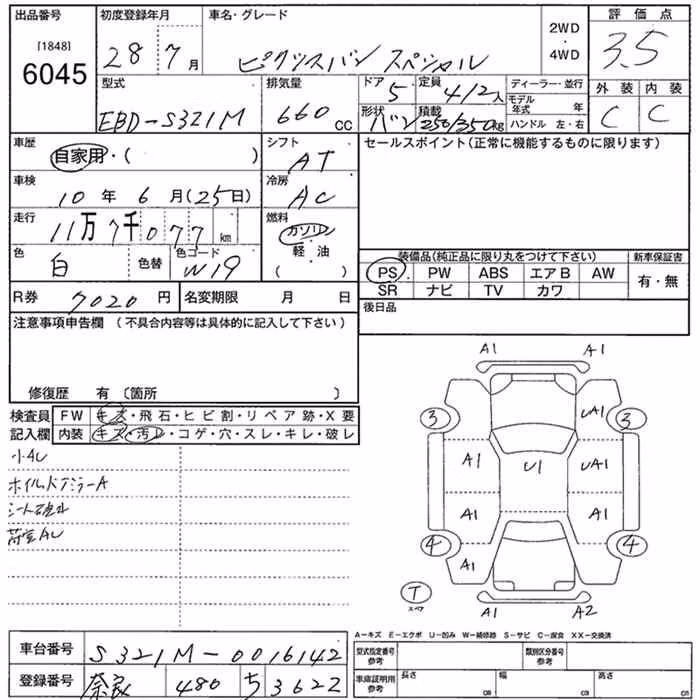 出品番号 初度登録年月 車名・グレード 2WD・4WD 評価点
[1848]
6045 28 7月 ピクシスバン スペシャル 3.5
型式 排気量 ドア 5 定員 4/2人 ディーラー・並行 外装 内装
EBD-S321M 660cc 形状 バン 積載 250/350kg モデル年式 年 C C
ハンドル 左・右
車歴 自家用・( ) シフト AT セールスポイント(正常に機能するものに限ります)
車検 10年6月(25日) 冷房 AC
走行 11万7千077km 燃料 ガソリン
軽油
( )
色 白 色替 色コード W19
装備品(純正品に限り丸をつけて下さい) 新車保証書
PS PW ABS エアB AW 有・無
SR ナビ TV カワ
R券 7020円 名変期限 月 日 後日品
注意事項申告欄 (不具合内容等は具体的に記入して下さい)
修復歴 有 〔箇所 〕
検査員 FW キズ・飛石・ヒビ割・リペア跡・X要
記入欄 内装 キズ・汚レ・コゲ・穴・スレ・キレ・破レ
小4U
A1 A1
3 UA1 3
A1 U1 UA1
A1 A1
4 A1 4
T
スペア
A1 A2
A-キズ E-エクボ U-凹み W-補修跡 S-サビ C-腐食 XX-交換済
車台番号 S321M-0016142
型式指定番号 参考 類別区分番号 参考
登録番号 奈良 480 ち 3622
車庫証明用 参考 長さ cm 幅 cm 高さ cm